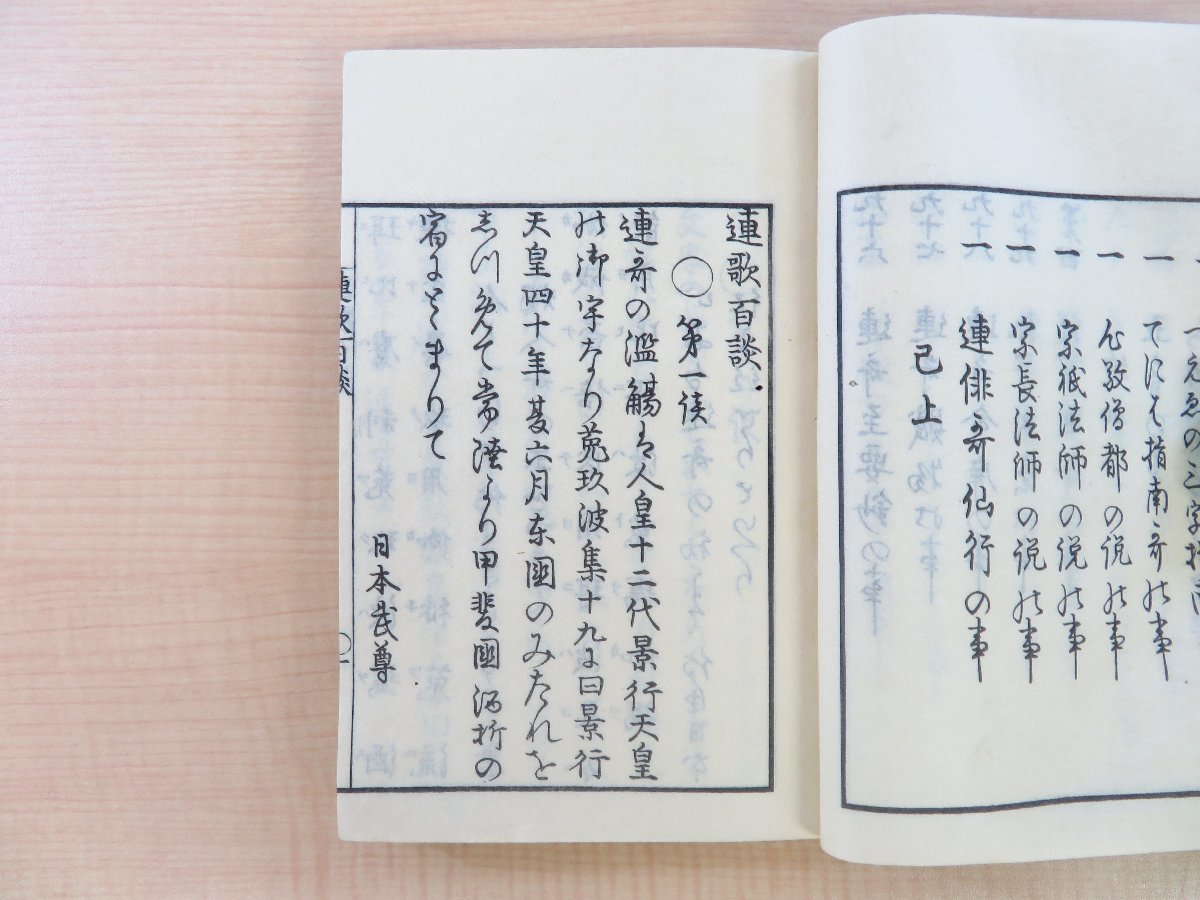 つゑの三字
一 てにをは指南哥の事
一 心敬僧都の説の事
一 宗祇法師の説の事
一 宗長法師の説の事
一 連俳哥仙行の事
已上
連歌百談
〇 第一談
連哥の濫觴は人皇十二代景行天皇
の御宇なり菟玖波集十九に曰景行
天皇四十年夏六月東國のみたれを
しつめて常陸より甲斐國酒折の
宿にとまりて
日本武尊
連歌百談
〇一